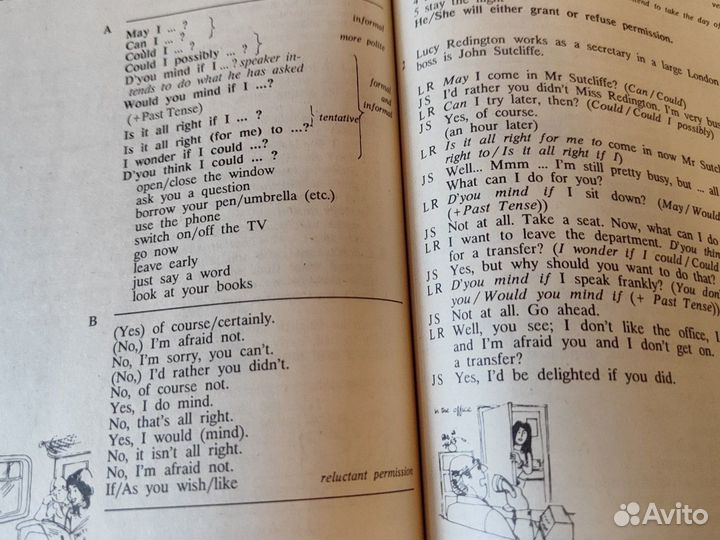 A
May I ... ?
Can I ... ?
Could I ... ?
Could I possibly ... ?
D'you mind if I ... ? speaker in-
tends to do what he has asked
Would you mind if I ...?
(+Past Tense)
Is it all right if I ... ?
Is it all right (for me) to ...?
I wonder if I could ...?
D'you think I could ... ?
informal
more polite
formal
and
informal
tentative
open/close the window
ask you a question
borrow your pen/umbrella (etc.)
use the phone
switch on/off the TV
go now
leave early
just say a word
look at your books
B
(Yes) of course/certainly.
(No,) I'm afraid not.
No, I'm sorry, you can't.
(No,) I'd rather you didn't.
No, of course not.
Yes, I do mind.
No, that's all right.
Yes, I would (mind).
No, it isn't all right.
No, I'm afraid not.
If/As you wish/like
reluctant permission
5 stay the night
tend to take the day of
He/She will either grant or refuse permission.
Lucy Redington works as a secretary in a large London
boss is John Sutcliffe.
LR May I come in Mr Sutcliffe? (Can/Could)
JS I'd rather you didn't Miss Redington. I'm very bus
LR Can I try later, then? (Could/Could I possibly)
JS Yes, of course.
(an hour later)
LR Is it all right for me to come in now Mr Sutc
right to/Is it all right if I)
JS Well... Mmm ... I'm still pretty busy, but ... all
What can I do for you?
LR D'you mind if I sit down? (May/Would
(+Past Tense))
JS Not at all. Take a seat. Now, what can I do
LR I want to leave the department. D'you thin
for a transfer? (I wonder if I could/Could
JS Yes, but why should you want to do that?
LR D'you mind if I speak frankly? (You don'
you/Would you mind if (+ Past Tense))
JS Not at all. Go ahead.
LR Well, you see; I don't like the office, I
and I'm afraid you and I don't get on.
a transfer?
JS Yes, I'd be delighted if you did.
in the office
Avito